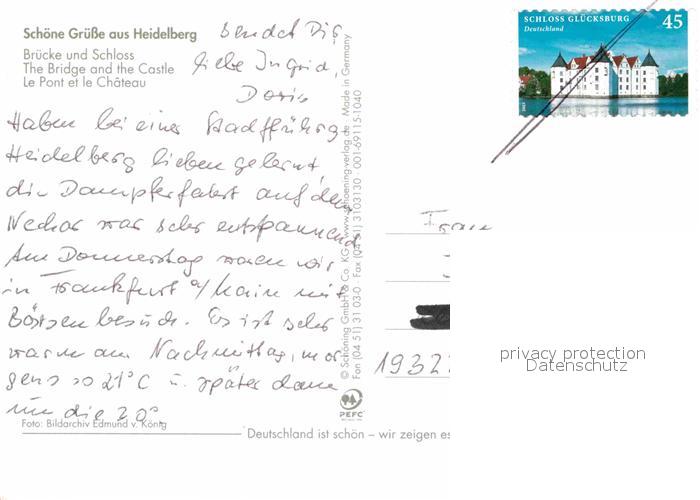 Schöne Grüße aus Heidelberg
Brücke und Schloss
The Bridge and the Castle
Le Pont et le Château
sendet Dir
liebe Ingrid,
Doris
Haben bei einer Stadtführg
Heidelberg lieben gelernt,
die Dampferfahrt auf dem
Neckar war sehr entspannend
Am Donnerstag waren wir
in Frankfurt a/Main mit
Börsenbesuch. Es ist sehr
warm am Nachmittag, mor
gens so 21°C u. später dann
um die 30°.
Foto: Bildarchiv Edmund v. König
© Schöning GmbH & Co. KG · www.schoening-verlag.de · Made in Germany
Fon (04 51) 31 03-0 · Fax (04 51) 3103130 · 001-69115-1040
PEFC
Deutschland ist schön – wir zeigen es
SCHLOSS GLÜCKSBURG
45
Deutschland
Frau
1932
privacy protection
Datenschutz